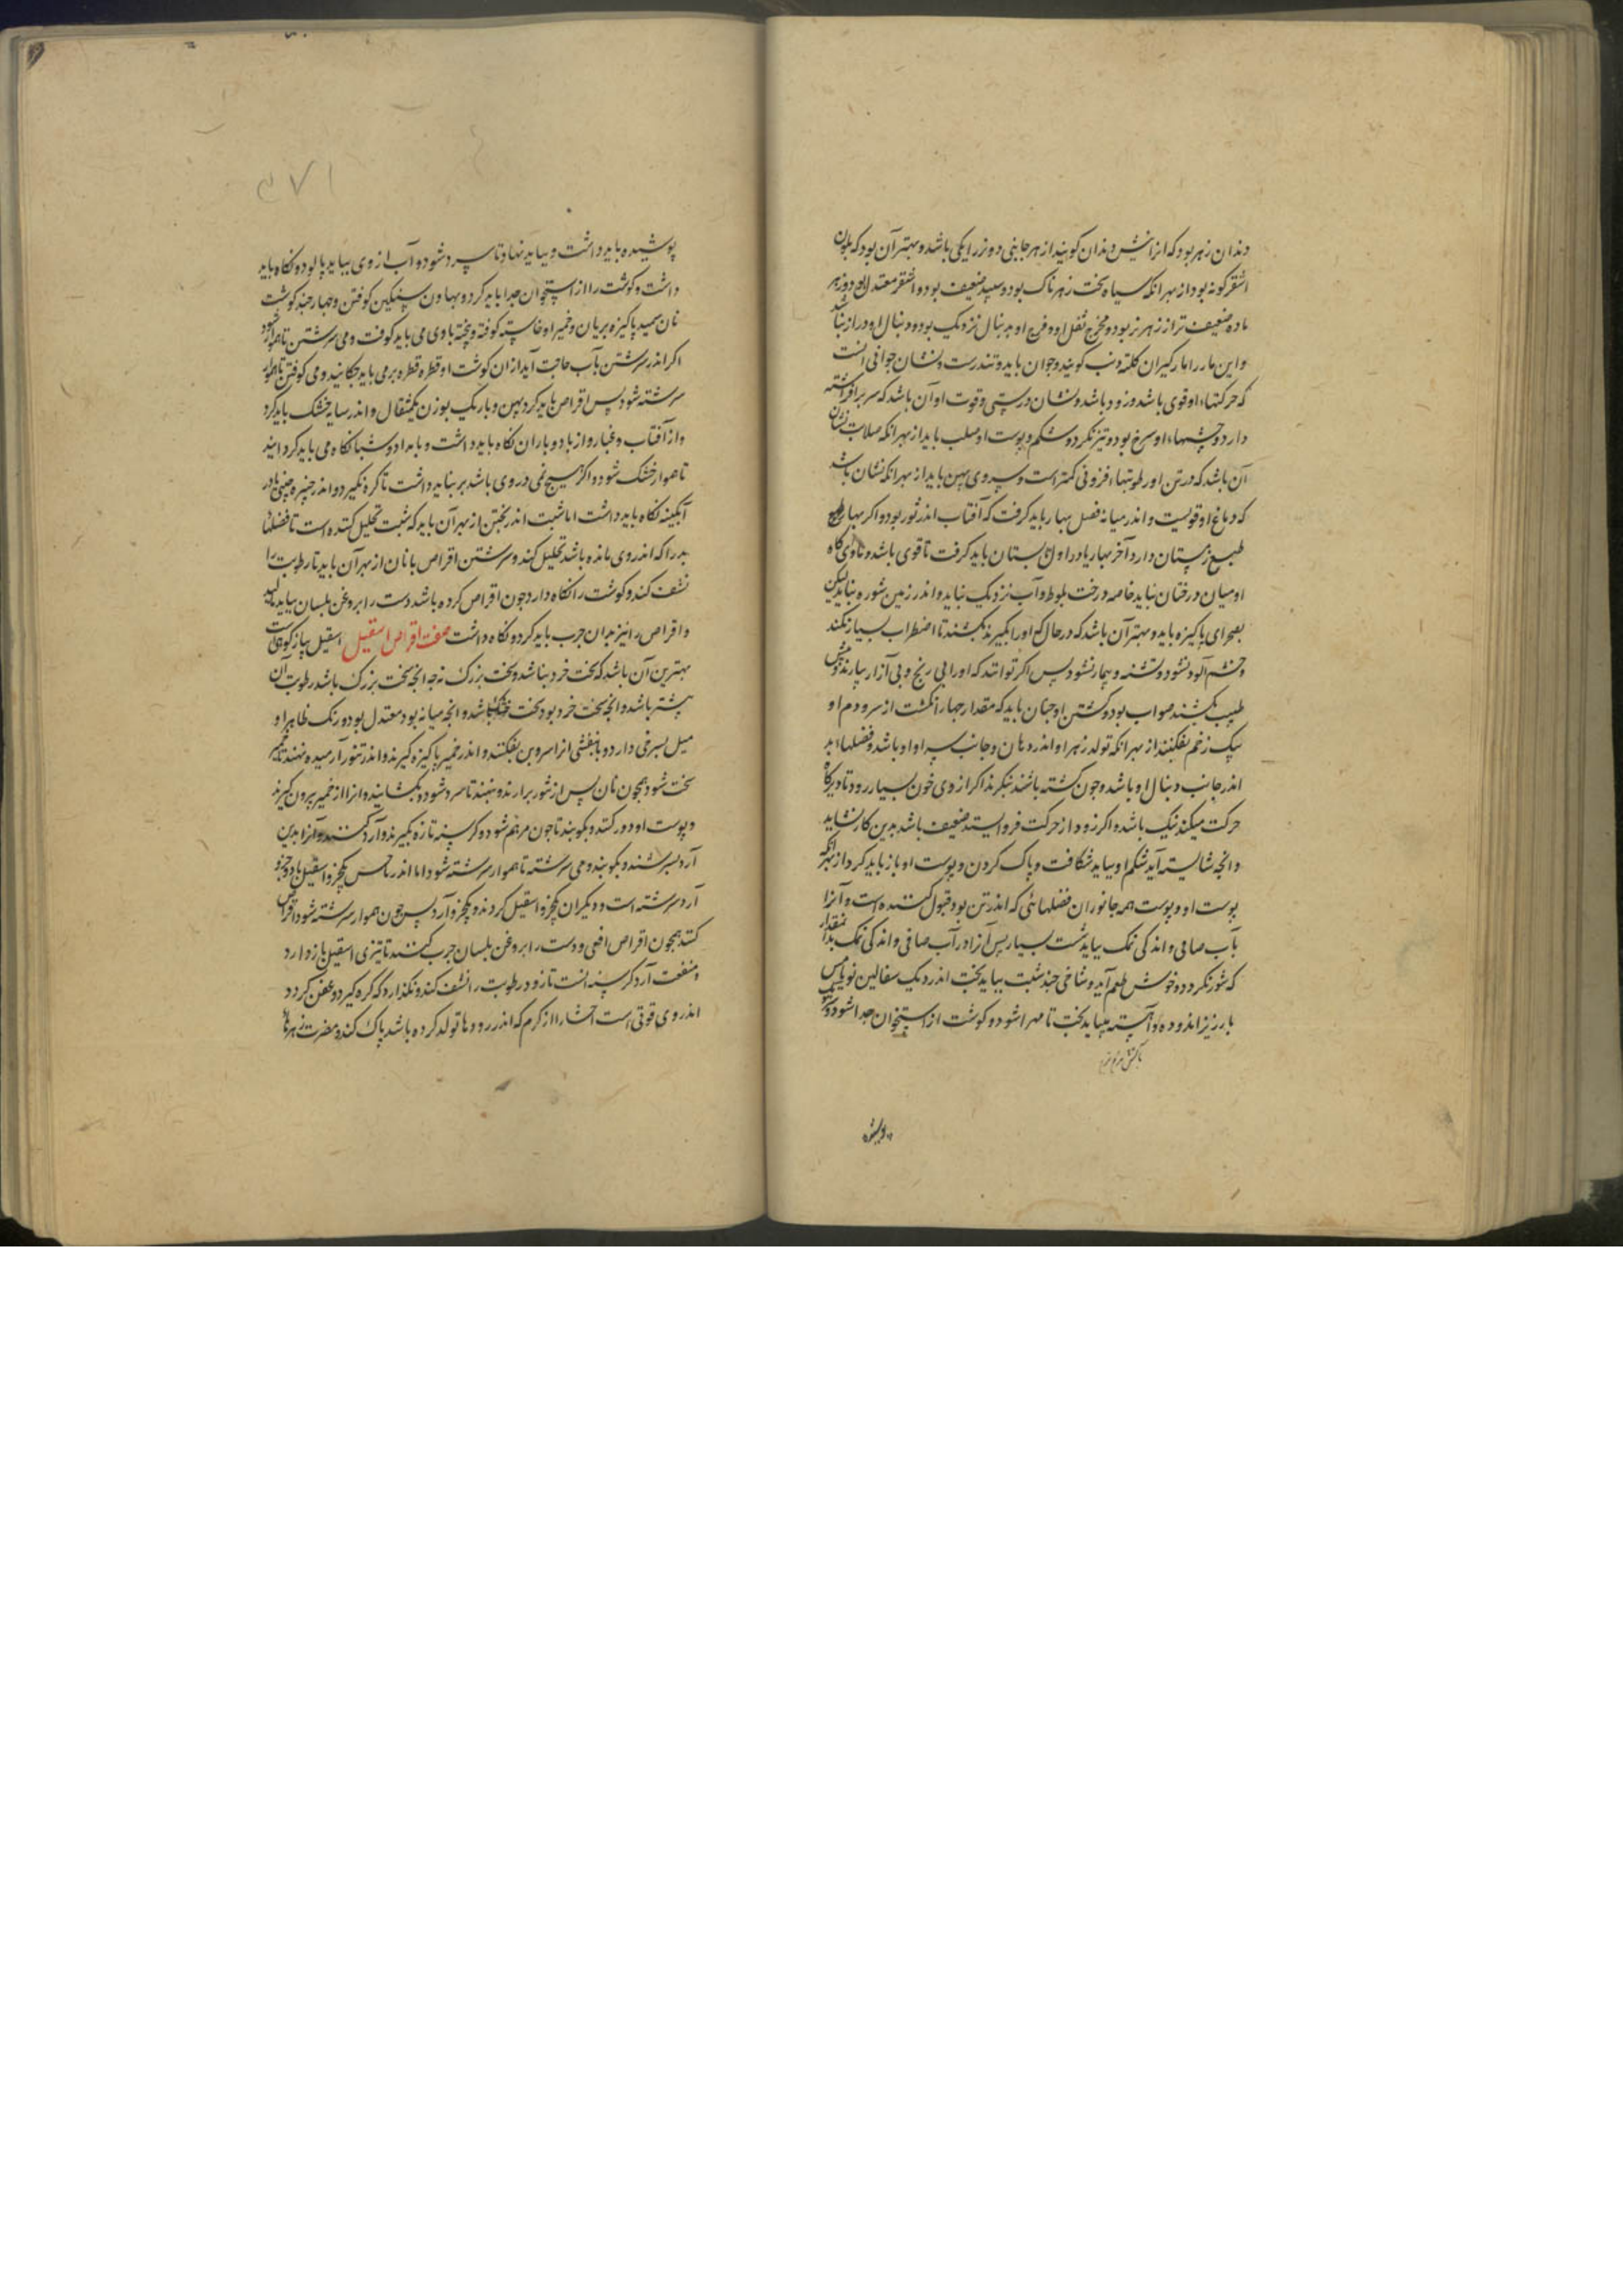 دندان زهر بود که انرا نیش دندان کویند از هر جانبی دو و نر را یکی باشد و بهتر آن بود که بلون
اشقر کونه بود از بهر انکه سیاه سخت زهرناک بود و سپید ضعیف بود و اشقر معتدل بود و زهر
ماده ضعیف تر از زهر نر بود و مخرج ثفل او و فرج او بدنبال نزدیک بود و دنبال او دراز نباشد
و این مار را مارکیران کلته دنب کویند و جوان باید و تندرست و نشان جوانی انست
که حرکتهاء او قوی باشد و زود باشد و نشان درستی و قوت او آن باشد که سر برافراشته
دارد و چشمهاء او سرخ بود و تیز نکرد و شکم و پوست او صلب باید از بهر انکه صلابت نشان
آن باشد که در تن او رطوبتهاء افزونی کمتر است و سر وی پهن باید از بهر انکه نشان باشد
که دماغ او قویست و اندر میانه فصل بهار باید کرفت که آفتاب اندر ثور بود و اکر بهار
طبع زمستان دارد آخر بهار یا در اول تابستان باید کرفت تا قوی باشد و ماوی کاه
او میان درختان نباید خاصه درخت بلوط و آب نزدیک نباید و اندر زمین شوره نباید لیکن
بصحرای پاکیزه باید و بهتر آن باشد که در حال که اورا بکیرند بکشند تا اضطراب بسیار نکند
و خشم آلود نشود و تشنه و بیمار نشود پس اکر توانند که اورا بی رنج و بی آزار بیارند و پیش
طبیب بکشند صواب بود و کشتن او چنان باید که مقدار چهار انکشت از سر و دم او
بیک زخم بفکنند از بهر انکه تولد زهر او اندر دهان و جانب سر او باشد و فضلهاء بد
اندر جانب دنبال او باشد و چون کشته باشند بنکرند اکر از وی خون بسیار رود و تا دیرکاه
حرکت میکند نیک باشد و اکر زود از حرکت فرو ایستد ضعیف باشد بدین کار نشاید
و انچه شایسته آید شکم او بباید شکافت و پاک کردن و پوست او باز باید کرد از بهر انکه
پوست او و پوست همه جانوران فضلهائی که اندر تن بود قبول کننده است و آنرا
بآب صافی و اندکی نمک بباید شست بسیار پس آنرا در آب صافی و اندکی نمک بدان مقدار
که شور نکردد و خوش طعم آید و شاخی چند شبت بباید پخت اندر دیک سفالین نو یا مس
بارزیز اندوده و آهسته بباید پخت تا مهرا شود و کوشت از استخوان جدا شود و سر
پوشیده
پوشیده باید داشت و بباید نهاد تا سرد شود و آب از وی بباید پالود و نکاه باید
داشت و کوشت را از استخوان جدا باید کرد و بهاون سنکین کوفتن و چهار چند کوشت
نان سمید پاکیزه بریان و خمیر او خاسته کوفته و پخته با وی می باید کوفت و می سرشتن تا هموار شود
اکر اندر سرشتن بآب حاجت آید از ان کوشت او قطره قطره بر می باید چکانید و می کوفتن تا هموار
سرشته شود پس اقراص باید کرد پهن و باریک بوزن یکمثقال و اندر سایه خشک باید کرد
و از آفتاب و غبار و از باد و باران نکاه باید داشت و بامداد و شبانکاه می باید کردانید
تا هموار خشک شود و اکر هیچ نمی در وی باشد بر نباید داشت تا کره نکیرد و اندر خنبره چینی یا در
آبکینه نکاه باید داشت اما شبت اندر پختن از بهر آن باید که شبت تحلیل کننده است تا فضلهاء
بد را که اندر وی مانده باشد تحلیل کند و سرشتن اقراص با نان از بهر آن باید تا رطوبت را
نشف کند و کوشت را نکاه دارد چون اقراص کرده باشد دست را بروغن بلسان بباید مالید
و اقراص را نیز بدان چرب باید کرد و نکاه داشت صفت اقراص اسقیل اسقیل پیاز کوهیست
بهترین آن باشد که سخت خرد نباشد و سخت بزرک نه چه انچه سخت بزرک باشد رطوبت آن
بیشتر باشد و انچه سخت خرد بود سخت خشک باشد و انچه میانه بود معتدل بود و رنک ظاهر او
میل بسرخی دارد و بنفشی انرا سر و بن بفکنند و اندر خمیر پاکیزه کیرند و اندر تنور آرمیده نهند تا خمیر
سخت شود همچون نان پس از تنور برارند و بنهند تا سرد شود و بکشایند و انرا از خمیر بیرون کیرند
و پوست او دور کنند و بکوبند تا چون مرهم شود و کرسنه تازه بکیرند و آرد کنند و آنرا بدین
آرد بسرشند و بکوبند و می سرشند تا هموار سرشته شود اما اندر یک جزو اسقیل با دو جزو
آرد سرشته است و دیکران یکجزو اسقیل کردند و یکجزو آرد پس چون هموار سرشته شود اقراص
کنند همچون اقراص افعی و دست را بروغن بلسان چرب کنند تا تیزی اسقیل باز دارد
و منفعت آرد کرسنه انست تا زود رطوبت را نشف کند و نکذارد که کره کیرد و عفن کردد
اندر وی قوتی است احشا را از کرم که اندر روده ها تولد کرده باشد پاک کند و مضرت زهرها